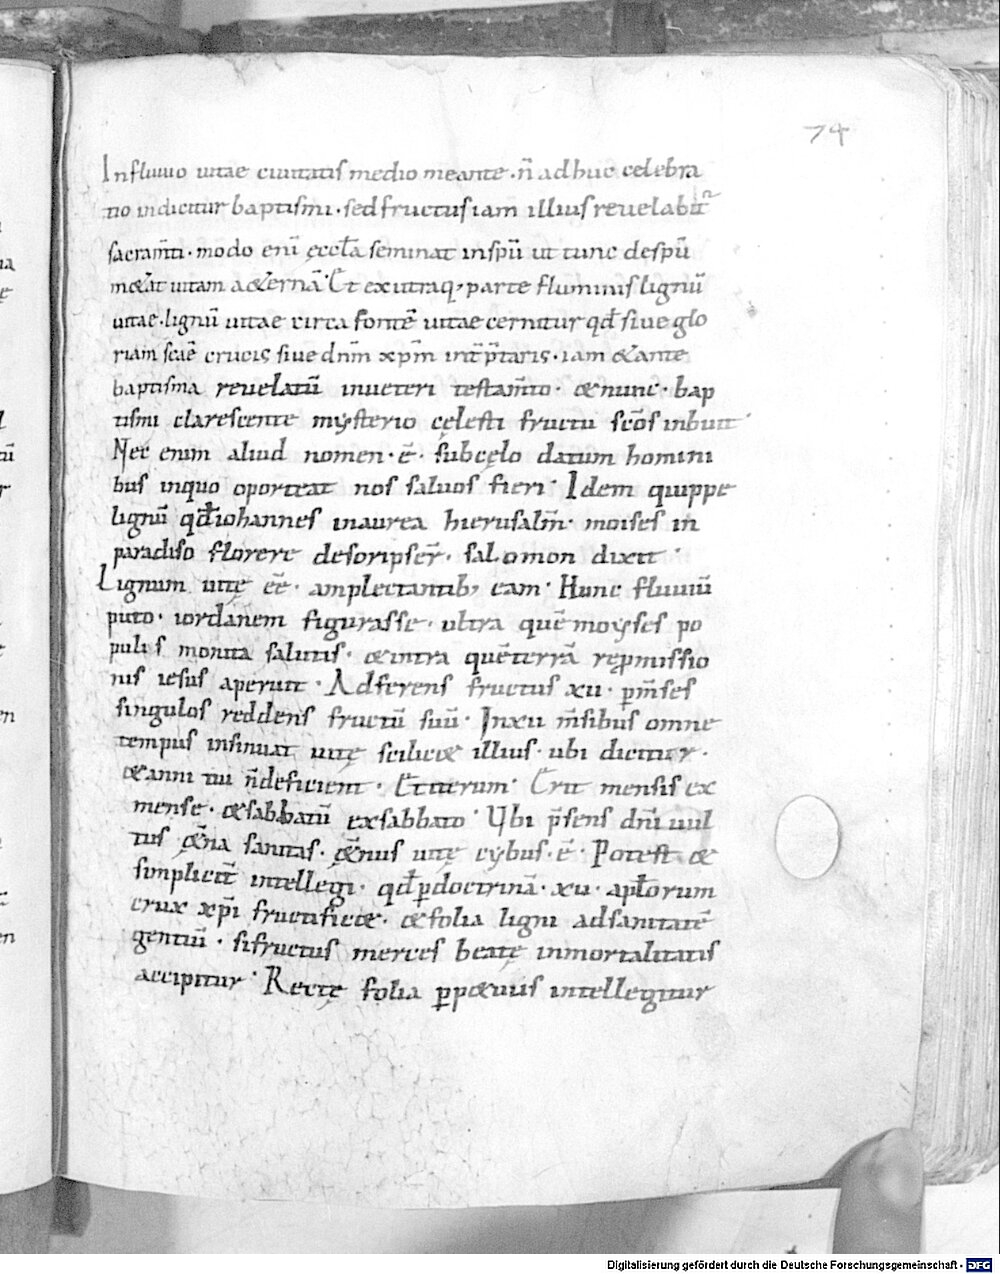 74
Influuio uitae ciuitatis medio meante · n̄ adhuc celebra
tio indicitur baptismi · sed fructus iam illius reuelabit̃
sacram̄ti · modo eni̅ ęccl̄a seminat inspū ut tunc despū
m&at uitam a&erna̅ · Et exutraq, parte fluminis lignu̅
uitae · lignu̅ uitae circa fonte̅ uitae cernitur qđ siue glo
riam sc̄ae̅ crucis siue dn̄m xp̄m int̄p̄taris · iam &ante
baptisma reuelatu̅ inueteri testam̄to · &nunc · bap
tismi clarescente mysterio cęlesti fructu sc̄os inbuit
Nec enim aliud nomen · ē · subcęlo datum homini
bus inquo oporteat nos saluos fieri · Idem quippe
lignu̅ qđiohannes inaurea hierusalm̄ · moises in
paradiso florere descripser̄ · salomon dixit ·
Lignum uitę eē · amplectentib, eam · Hunc fluuiu̅
puto · iordanem figurasse · ultra que̅ moyses po
pulis monita salutis · &intra que̅terra̅ rep̱missio
nis iesus aperuit · Adferens fructus xii · p̄m̄ses
singulos reddens fructu̅ suu̅ · Inxii m̄sibus omne
tempus insinuat uitę scilic& illius · ubi dicitur ·
&anni tui n̄deficient · Etiterum · Erit mensis ex
mense · &sabbatu̅ exsabbato · Ubi p̄sens dn̄i uul
tus &̨na sanitas · &̨nus uitę cybus · ē · Potest &
simplicit̄ intellegi · qđ p̱doctrina̅ · xii · apl̄orum
crux xp̄i fructific& · &folia ligni adsanitate̅
gentiu̅ · sifructus merces beatę inmortalitatis
accipitur · Rectę folia p̱p&uus intellegitur
Digitalisierung gefördert durch die Deutsche Forschungsgemeinschaft - DFG